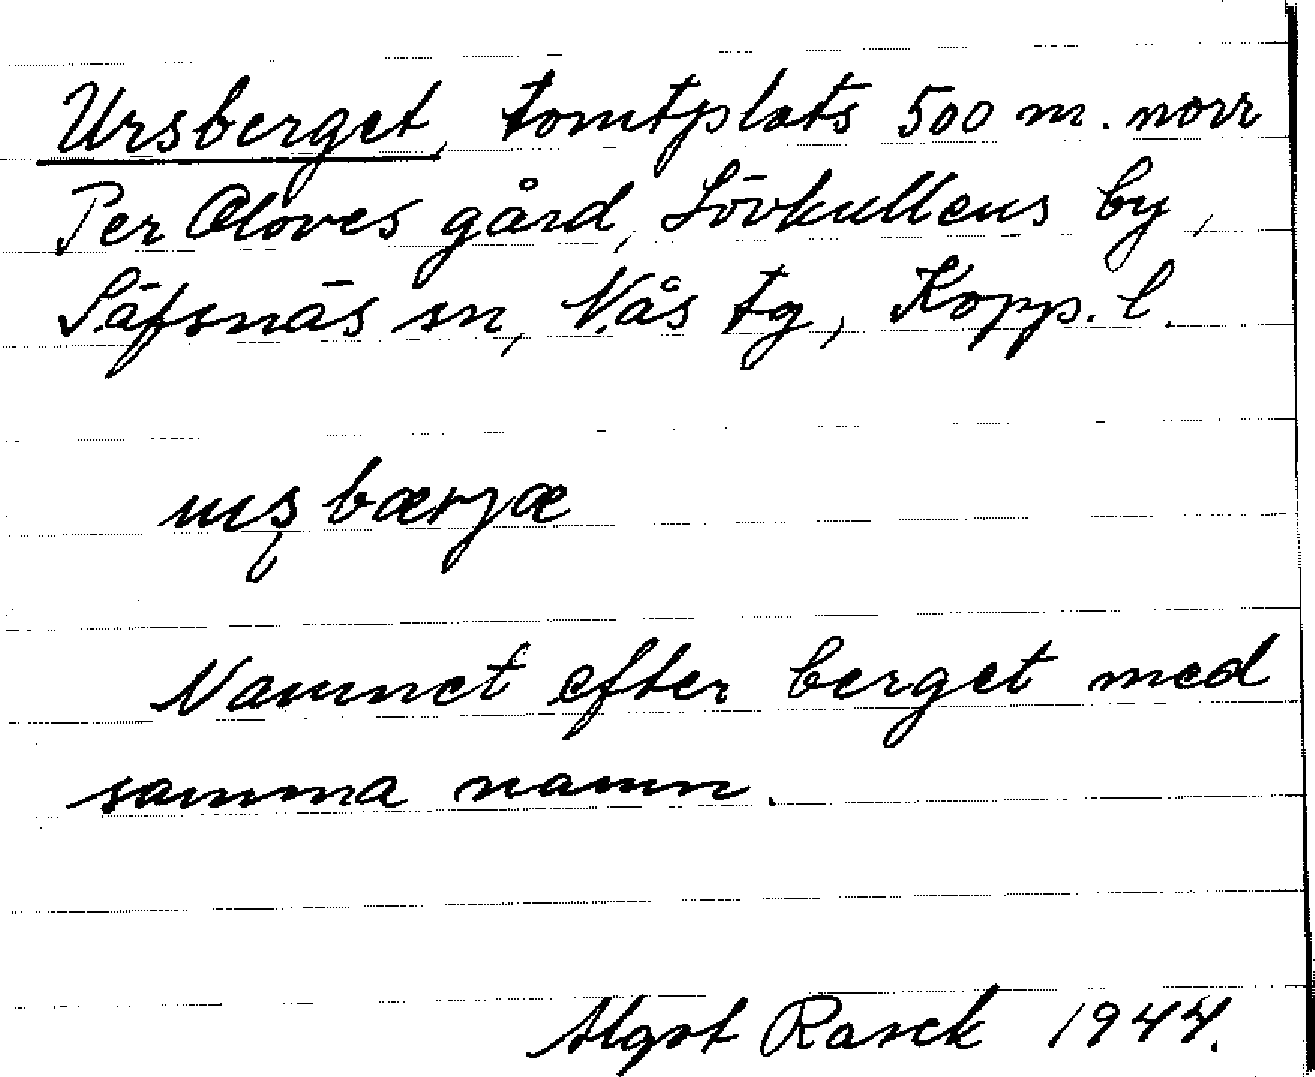 Ursberget, tomtplats 500 m. norr
Per Oloves gård, Lövkullens by,
Säfsnäs sn, Nås tg, Kopp. l.
bærjæ
Namnet efter berget med
samma namn.
Algot Rasck 1944.